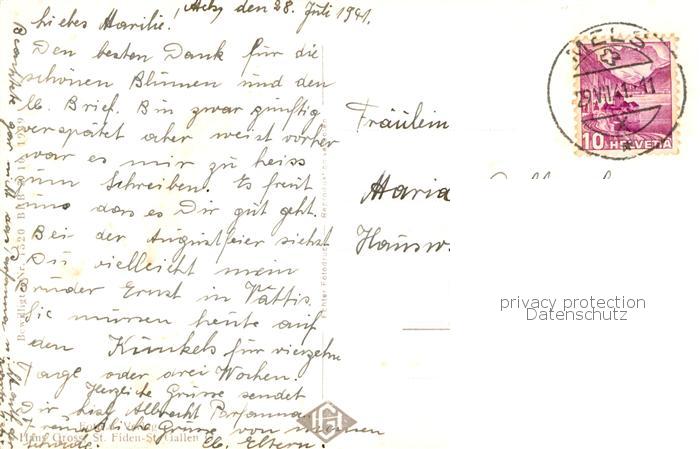 den 28. Juli 1941.
Liebes Marilie!
Den besten Dank für die
schönen Blumen und den
lb. Brief. Bin zwar zünftig
verspätet aber weist vorher
war es mir zu heiss
zum Schreiben. Es freut
uns dass es Dir gut geht.
Bei der Augustfeier siehst
Du vielleicht mein
Bruder Ernst in Vättis.
Sie müssen heute auf
den Kunkels für vierzehn
Tage oder drei Wochen.
Herzliche Grüsse sendet
Dir Albrecht
Freundliche Grüsse von meinen
lb. Eltern.
Fräulein
Maria
Hausw.
MELS
29.VII.41.-11
10 HELVETIA
privacy protection
Datenschutz
Hans Gross, St. Fiden-St. Gallen